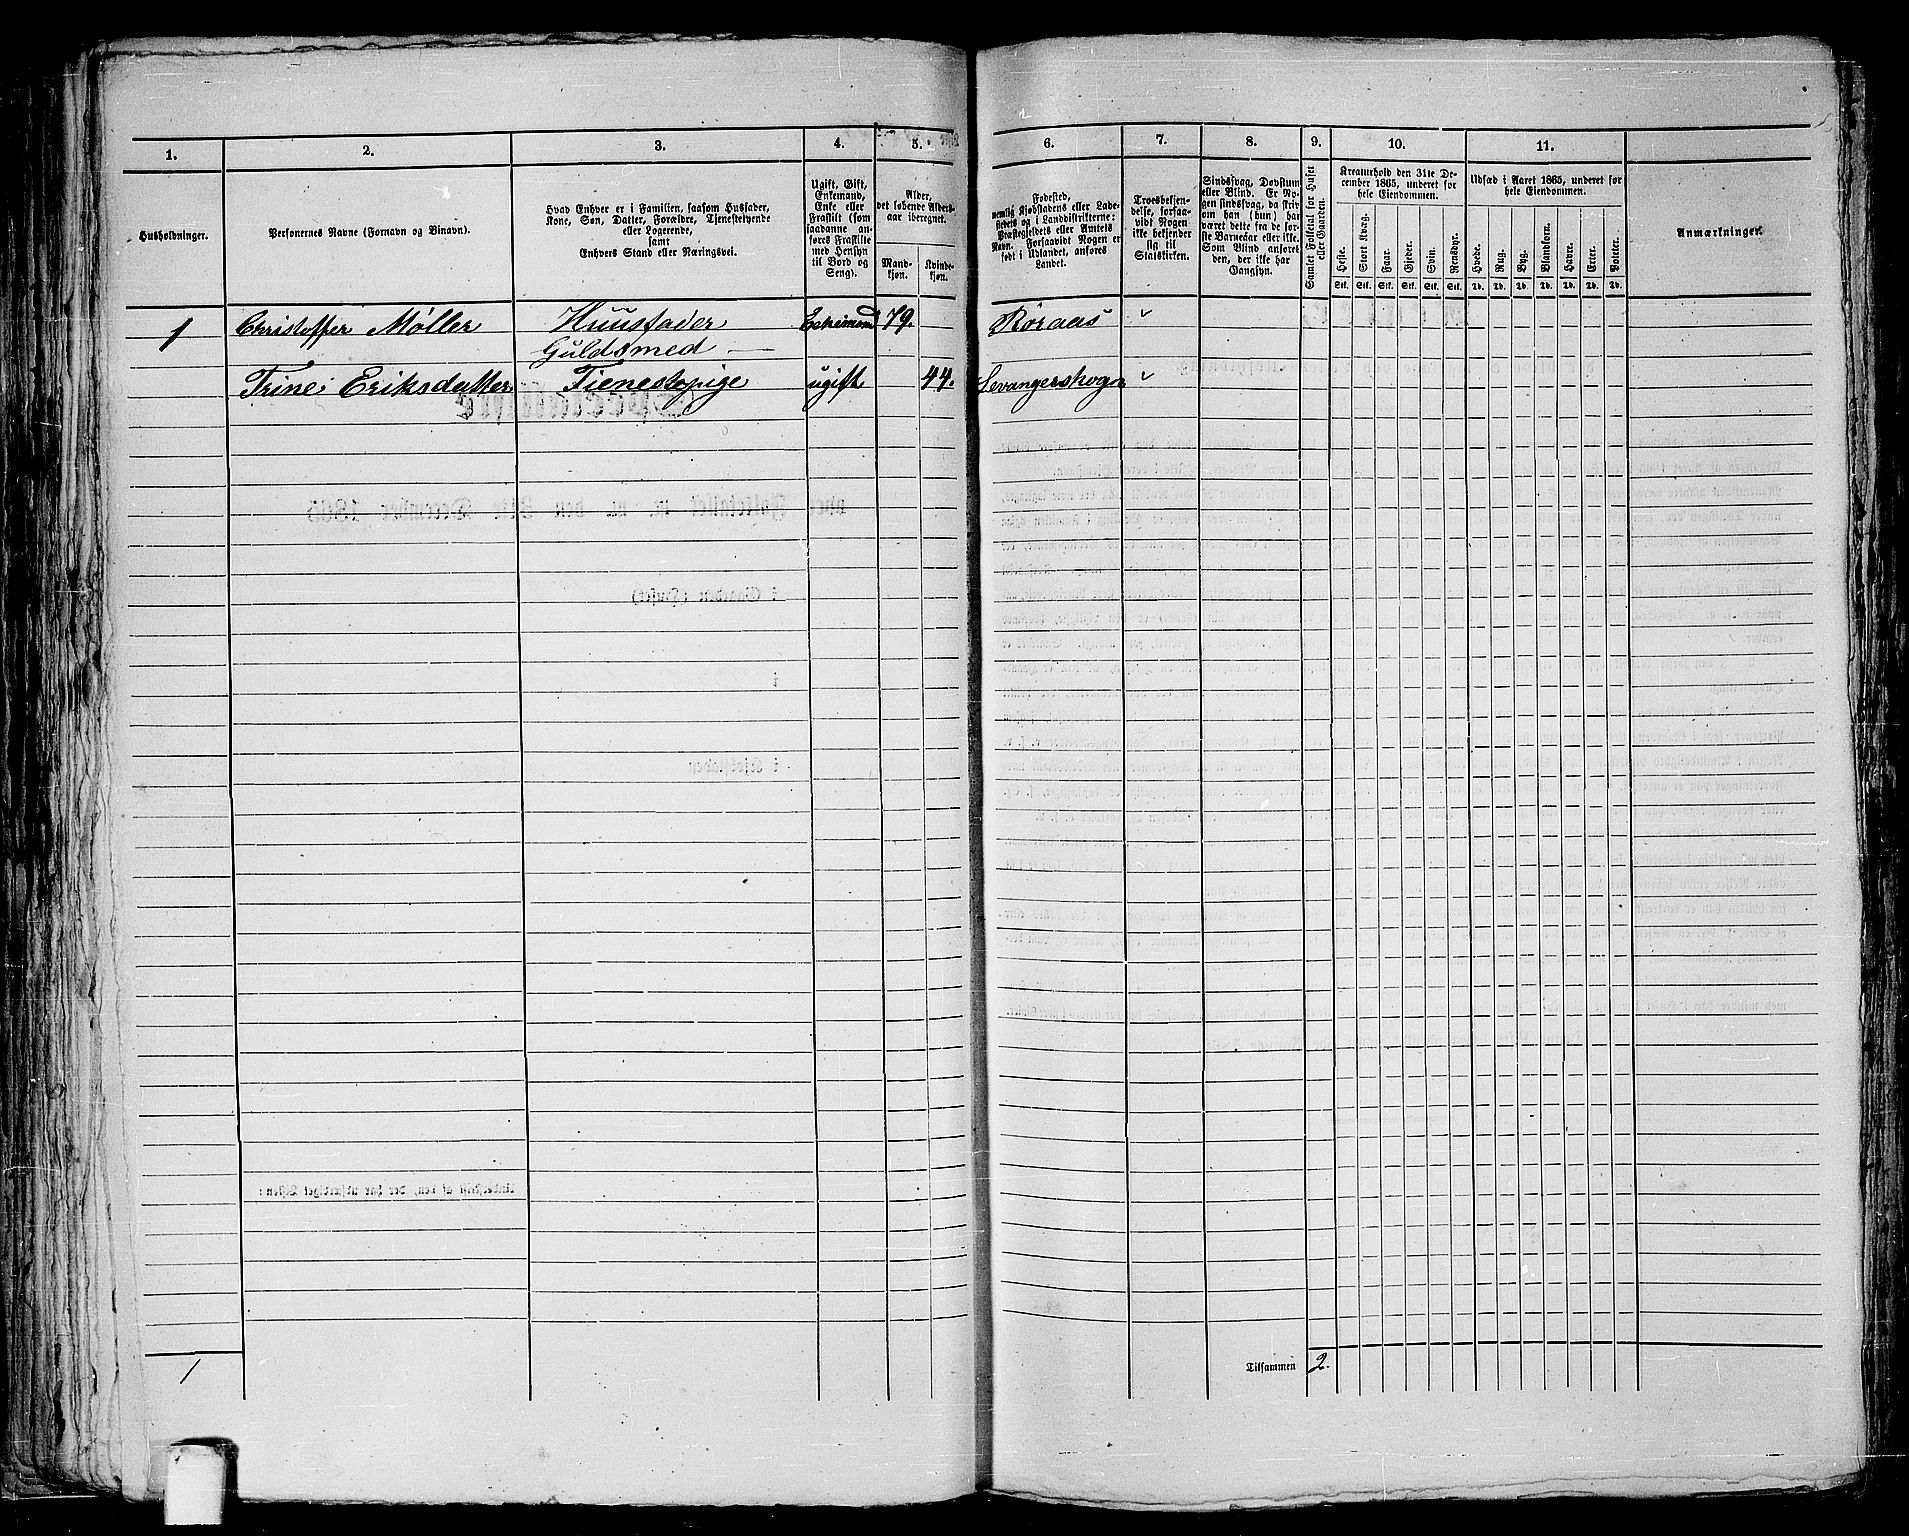 1. 2. 3. 4. 5. 6. 7. 8. 9. 10. 11.
Husholdninger.
Personernes Navne (Fornavn og Binavn).
Hvad Enhver er i Familien, saasom Husfader,
Kone, Søn, Datter, Forældre, Tjenestetyende
eller Logerende,
samt
Enhvers Stand eller Næringsvei.
Ugift, Gift,
Enkemand,
Enke eller
Fraskilt (som
saadanne an-
føres Fraskilte
med Hensyn
til Bord og
Seng).
Alder,
det løbende Alders-
aar iberegnet.
Mand-
kjøn.
Kvinde-
kjøn.
Fødested,
nemlig Kjøbstadens eller Lade-
stedets og i Landdistrikterne:
Præstegjeldets eller Amtets
Navn. Forsaavidt Nogen er
født i Udlandet, anføres
Landet.
Troesbekjen-
delse, forsaa-
vidt Nogen
ikke bekjender
sig til
Statskirken.
Sindssvag, Døvstum
eller Blind. Er No-
gen sindssvag, da skriv
om han (hun) har
været dette fra de før-
ste Barneaar eller ikke.
Som Blind anføres
den, der ikke har
Gangsyn.
Samlet Folketal for Huset
eller Gaarden.
Kreaturhold den 31te De-
cember 1865, underet for
hele Eiendommen.
Heste. Stort Kvæg. Faar. Gjeder. Svin. Rensdyr.
Stk. Stk. Stk. Stk. Stk. Stk.
Udsæd i Aaret 1865, underet for
hele Eiendommen.
Hvede. Rug. Byg. Blandkorn. Havre. Erter. Poteter.
Td. Td. Td. Td. Td. Td. Td.
Anmærkninger.
1 Christoffer Møller Huusfader Enkemand 79. Röraas
Guldsmed
Trine Eriksdatter Tienestepige ugift 44. Levangerskogn
1 Tilsammen 2.